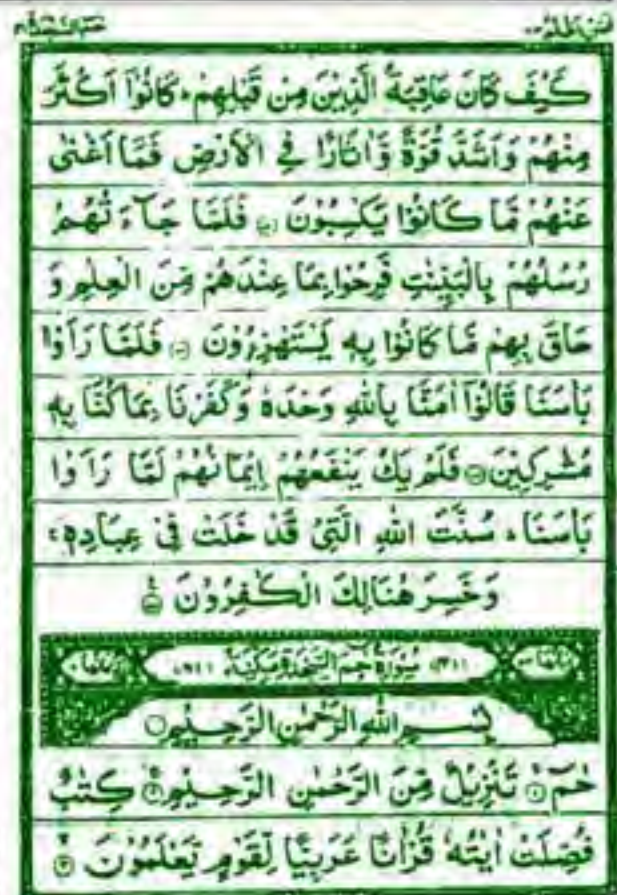 فمن اظلم ٢٤
حم السجدة ٤١
كَيْفَ كَانَ عَاقِبَةُ الَّذِيْنَ مِنْ قَبْلِهِمْ ؕ كَانُوْۤا اَكْثَرَ
مِنْهُمْ وَاَشَدَّ قُوَّةً وَّاٰثَارًا فِي الْاَرْضِ فَمَاۤ اَغْنٰى
عَنْهُمْ مَّا كَانُوْا يَكْسِبُوْنَ ۝ فَلَمَّا جَآءَتْهُمْ
رُسُلُهُمْ بِالْبَيِّنٰتِ فَرِحُوْا بِمَا عِنْدَهُمْ مِّنَ الْعِلْمِ وَ
حَاقَ بِهِمْ مَّا كَانُوْا بِهٖ يَسْتَهْزِءُوْنَ ۝ فَلَمَّا رَاَوْا
بَاْسَنَا قَالُوْۤا اٰمَنَّا بِاللّٰهِ وَحْدَهٗ وَكَفَرْنَا بِمَا كُنَّا بِهٖ
مُشْرِكِيْنَ ۝ فَلَمْ يَكُ يَنْفَعُهُمْ اِيْمَانُهُمْ لَمَّا رَاَوْا
بَاْسَنَا ؕ سُنَّتَ اللّٰهِ الَّتِيْ قَدْ خَلَتْ فِيْ عِبَادِهٖ ۚ
وَخَسِرَ هُنَالِكَ الْكٰفِرُوْنَ ۝
(٤١) سُوْرَةُ حٰمٓ السَّجْدَةِ مَكِّيَّةٌ (٦١)
بِسْمِ اللّٰهِ الرَّحْمٰنِ الرَّحِيْمِ ۝
حٰمٓ ۝ تَنْزِيْلٌ مِّنَ الرَّحْمٰنِ الرَّحِيْمِ ۝ كِتٰبٌ
فُصِّلَتْ اٰيٰتُهٗ قُرْاٰنًا عَرَبِيًّا لِّقَوْمٍ يَّعْلَمُوْنَ ۝